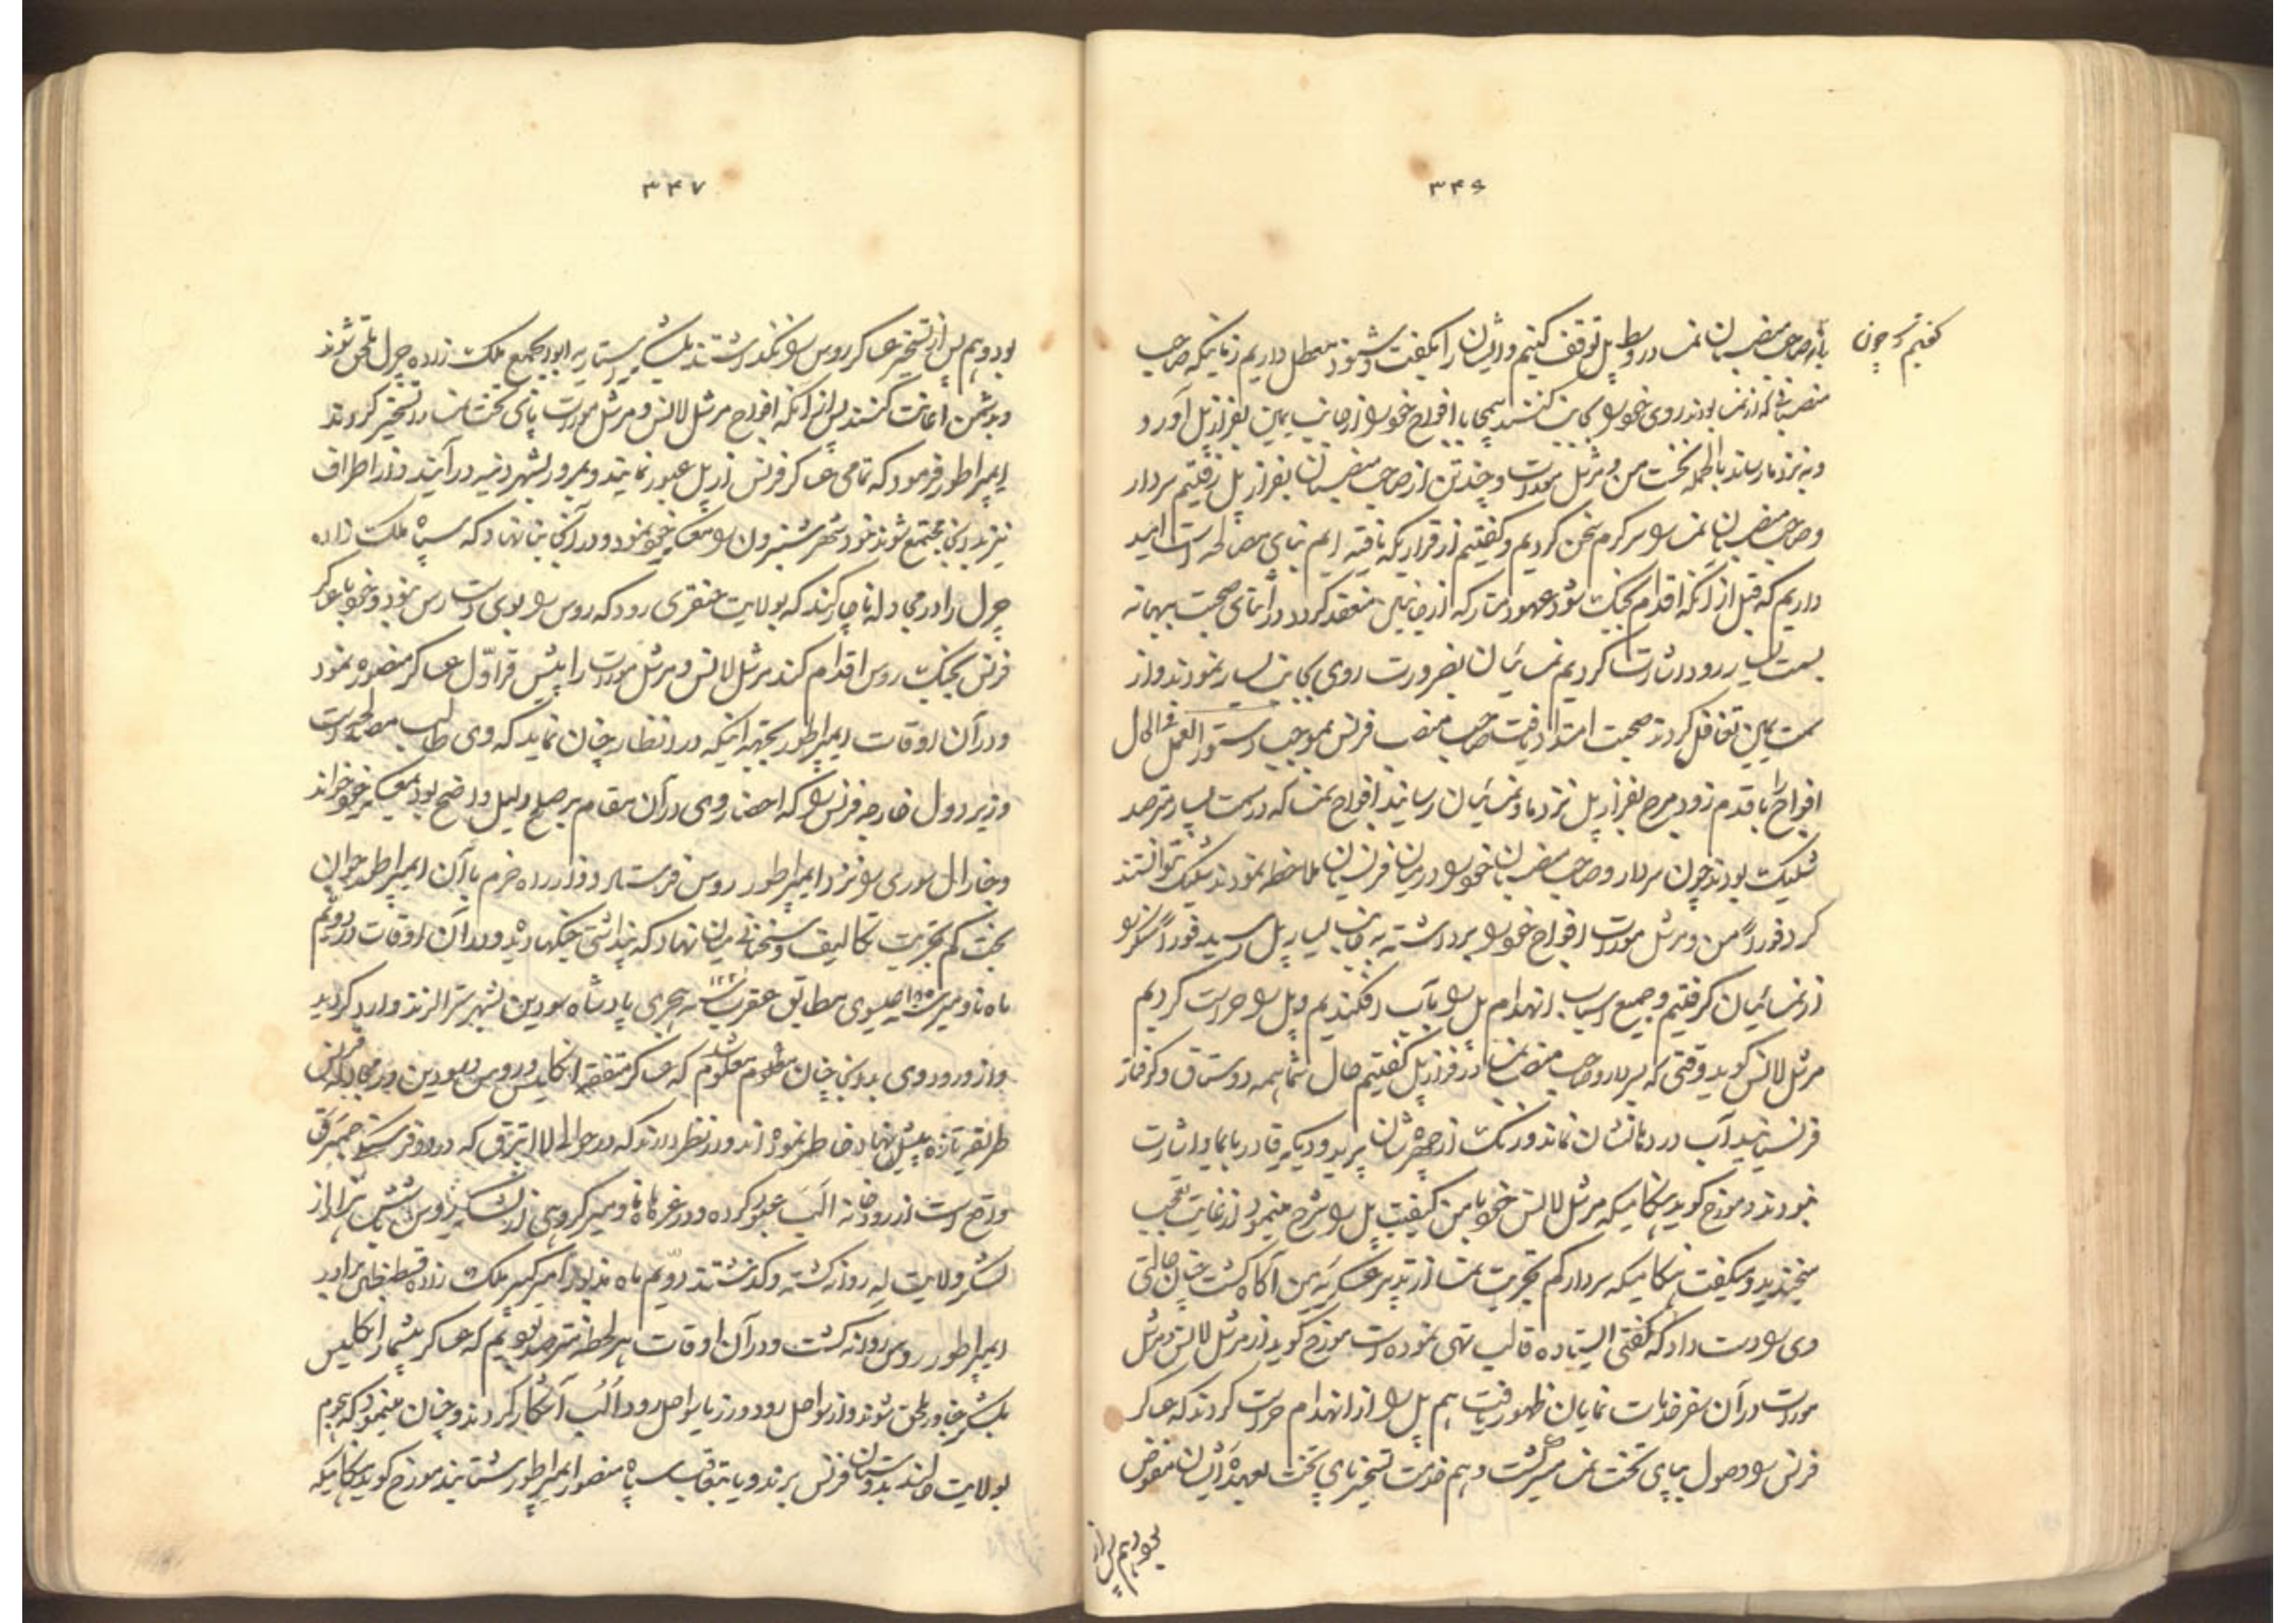 ۳۴۶
گفتیم که چون
با صاحب منصبان نمسا در وسط پل توقف کنیم و ایشان را بگفت و شنود معطل داریم زمانیکه صاحب
منصبانی که از نمسا بودند روی خود را بجانب کنند با افواج خود را از جانب یمین بفراز پل آورد
و به نزد ما رساند بالجمله نخست من و مرشل مورات و چند تن از صاحب منصبان بفراز پل رفتیم سردار
و صاحب منصبان نمسا را سرگرم سخن کردیم و گفتیم از قراریکه یافته ایم بنای مصالحه است امید
داریم که قبل از آنکه اقدام بجنگ شود عهود متارکه از جانبین منعقد گردد در اثنای صحبت
بسمت یسار رود اشارت کردیم نمسائیان بضرورت روی بجانب یسار نمودند و از
سمت یمین تغافل کردند صحبت امتداد یافت صاحب منصب فرنس بموجب دستور العمل فی الحال
افواج را با قدم زود بفراز پل نزد ما و نمسائیان رسانید افواج نمسا که در سمت یسار مترصد
شلیک بودند چون سردار و صاحب منصبان خود را در میان فرنسیان ملاحظه نمودند شلیک نتوانستند
کرد فوراً من و مرشل مورات افواج خود را برداشته به جانب یسار پل رسید فوراً سنگر را
از نمسائیان گرفتیم و جمیع اسباب انهدام پل را بآب افکندیم و پل را حراست کردیم
مرشل لانس گوید وقتی که بسردار و صاحب منصب نمسا در فراز پل گفتیم حال شما همه دوستاق و گرفتار
فرنسیانید آب در دهانشان نماند و رنگ از چهره شان پرید و دیگر قادر بایما و اشارت
نبودند و مورخ گوید هنگامیکه مرشل لانس خود با من کیفیت پل را شرح مینمود از غایت تعجب
میخندید و میگفت هنگامیکه سردار کم تجربت نمسا از تدبیر عسکریه من آگاه گشت چنان حالتی
وی را دست داد که گفتی ایستاده قالب تهی نموده است مورخ گوید از مرشل لانس و مرشل
مورات در آن سفر خدمات نمایان ظهور یافت هم پل را از انهدام حراست کردند که عساکر
فرنس را وصول بپای تخت نمسا میسر گشت و هم خدمت تسخیر پای تخت بعهده ایشان مفوض
بود و هم پس از
۳۴۷
بود و هم پس از تسخیر عساکر روس را نگذاشتند بلشکر بسیاریه ابوابجمعی ملک زاده چرل ملحق شوند
و بدشمن اعانت کنند پس از آنکه افواج مرشل لانس و مرشل مورات پای تخت نمسا را تسخیر کردند
ایمپراطور فرمود که تمامی عساکر فرنس از پل عبور نمایند و بمرور بشهر وینه درآیند و از اطراف
نیز بدانجا مجتمع شوند خود شهر شنبرون را معسکر خود نمود و در آنجا بنا نهاد که سپاه ملک زاده
چرل را در مجادله ناچار کند که بولایت هنقری رود که روس را بوی دست رس نبود و خود با عساکر
فرنس بجنگ روس اقدام کند مرشل لانس و مرشل مورات را پیش قراول عساکر منصوره نمود
و در آن اوقات ایمپراطور بجهة اینکه در انظار چنان نماید که وی طالب مصالحه است
وزیر دول خارجه فرنس را که احضار وی در آن مقام بر صلح دلیل واضح بود بمعسکر خود خواند
و جنرال سوری را نزد ایمپراطور روس فرستاد و از راه حزم با آن ایمپراطور جوان
بخت کم تجربت تکالیف و سخنانی میان نهاد که پنداشتی جنگها دیده و در آن اوقات در دویم
ماه ناومبر سنه ۱۸۰۵ عیسوی مطابق عقرب سنه ۱۲۲۰ هجری پادشاه سودین بشهر سترالزند وارد گردید
و از ورود وی بدانجا چنان مفهوم و معلوم شد که عساکر متفقه انگلیس و روس و سودین در مجادله فرنس
طریقه تازه پیش نهاد خاطر نموده اند و در نظر دارند که در حوالی که در دو فرسخی
واقع است از رودخانه الب عبور کرده و در غره ماه ناومبر گروهی از لشکر روس شش هزار از
لشکر ولایت له روانه گشته و گذشتند دویم ماه مذبور امیر کبیر ملک زاده قسطنطین برادر
ایمپراطور روس روانه گشت و در آن اوقات هر لحظه مترصد بودیم که عساکر بیشمار انگلیس
بلشکر خاور ملحق شوند و از سواحل رود ویزر یا سواحل رود الب آشکار گردند و چنان مینمود که هجوم
بولایت هلند بدوستان فرنس برند و یا بتعاقب سپاه منصور ایمپراطور شتابند مورخ گوید هنگامیکه